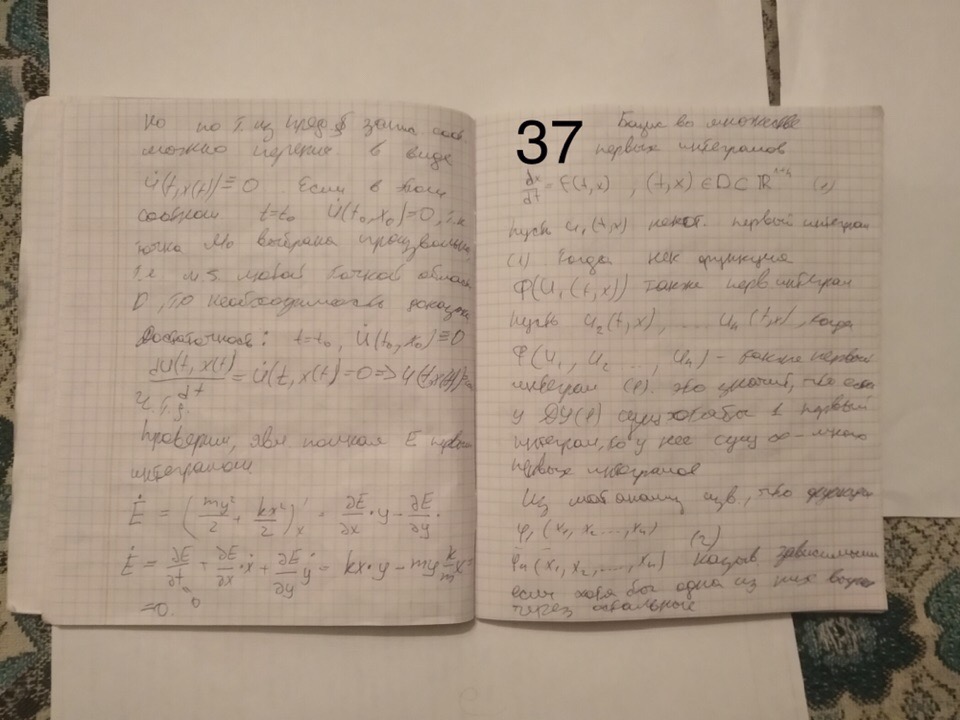 Но по т. из пред § зания соот.
можно перепис в виде
u̇(t,x(t))≡0 Если в этом
t=t₀ u̇(t₀,x₀)=0, т.к
точка M₀ выбрана произвольно,
т.е м.б. любой точкой област
D, то необходимость доказана
Достаточность: t=t₀, u̇(t₀,x₀)≡0
du(t,x(t))/dt = u̇(t,x(t))=0 =>
ч.т.д
Проверим, явл полная E первым
интегралом
Ė = (my²/2 + kx²/2)'ₓ = ∂E/∂x · y - ∂E/∂y ·
Ė = ∂E/∂t + ∂E/∂x · ẋ + ∂E/∂y ẏ = kx·y - my k/m x =
=0. 0
37 Базис во множестве
первых интегралов
dx/dt = f(t,x), (t,x) ∈ D ⊂ ℝ¹⁺ⁿ (1)
пусть u₁(t,x) некот. первый интеграл
(1) Тогда нек функция
Φ(u₁(t,x)) также перв интеграл
пусть u₂(t,x), .... uₙ(t,x), тогда
φ(u₁, u₂ ..., uₙ) - также первый
интеграл (1). это значит, что если
у ДУ(1) сущ хотя бы 1 первый
интеграл, то у нее сущ ∞-много
первых интегралов
Из мат анализ изв, что функции
φ₁(x₁, x₂ ..., xₙ)
(2)
φₙ(x₁, x₂, ..., xₙ) назыв. зависимыми
если хотя бы одна из них
через остальные